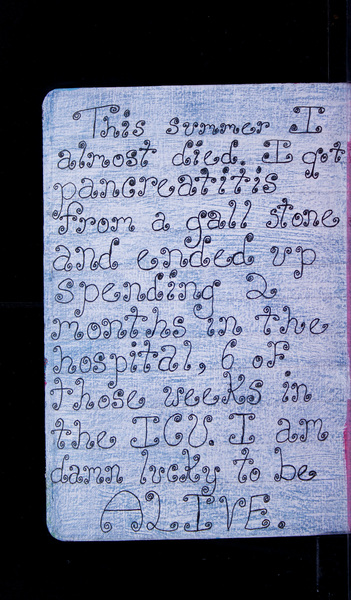 This summer I
almost died. I got
pancreatitis
from a gall stone
and ended up
spending 2
months in the
hospital, 6 of
those weeks in
the ICU. I am
damn lucky to be
ALIVE.